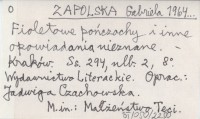 O ZAPOLSKA Gabriela 1964...
Fioletowe pończochy i inne
opowiadania nieznane. -
Kraków. Ss. 294, nlb. 2, 8°.
Wydawnictwo Literackie. Oprac.:
Jadwiga Czachowska.
M. in.: Małżeństwo Tęci.